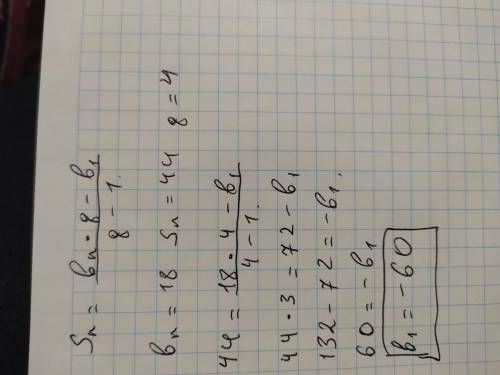 Sn = (bn • q - b1) / (q - 1.)
bn = 18 Sn = 44 q = 4
44 = (18 • 4 - b1) / (4 - 1.)
44 • 3 = 72 - b1
132 - 72 = -b1.
60 = -b1
b1 = -60